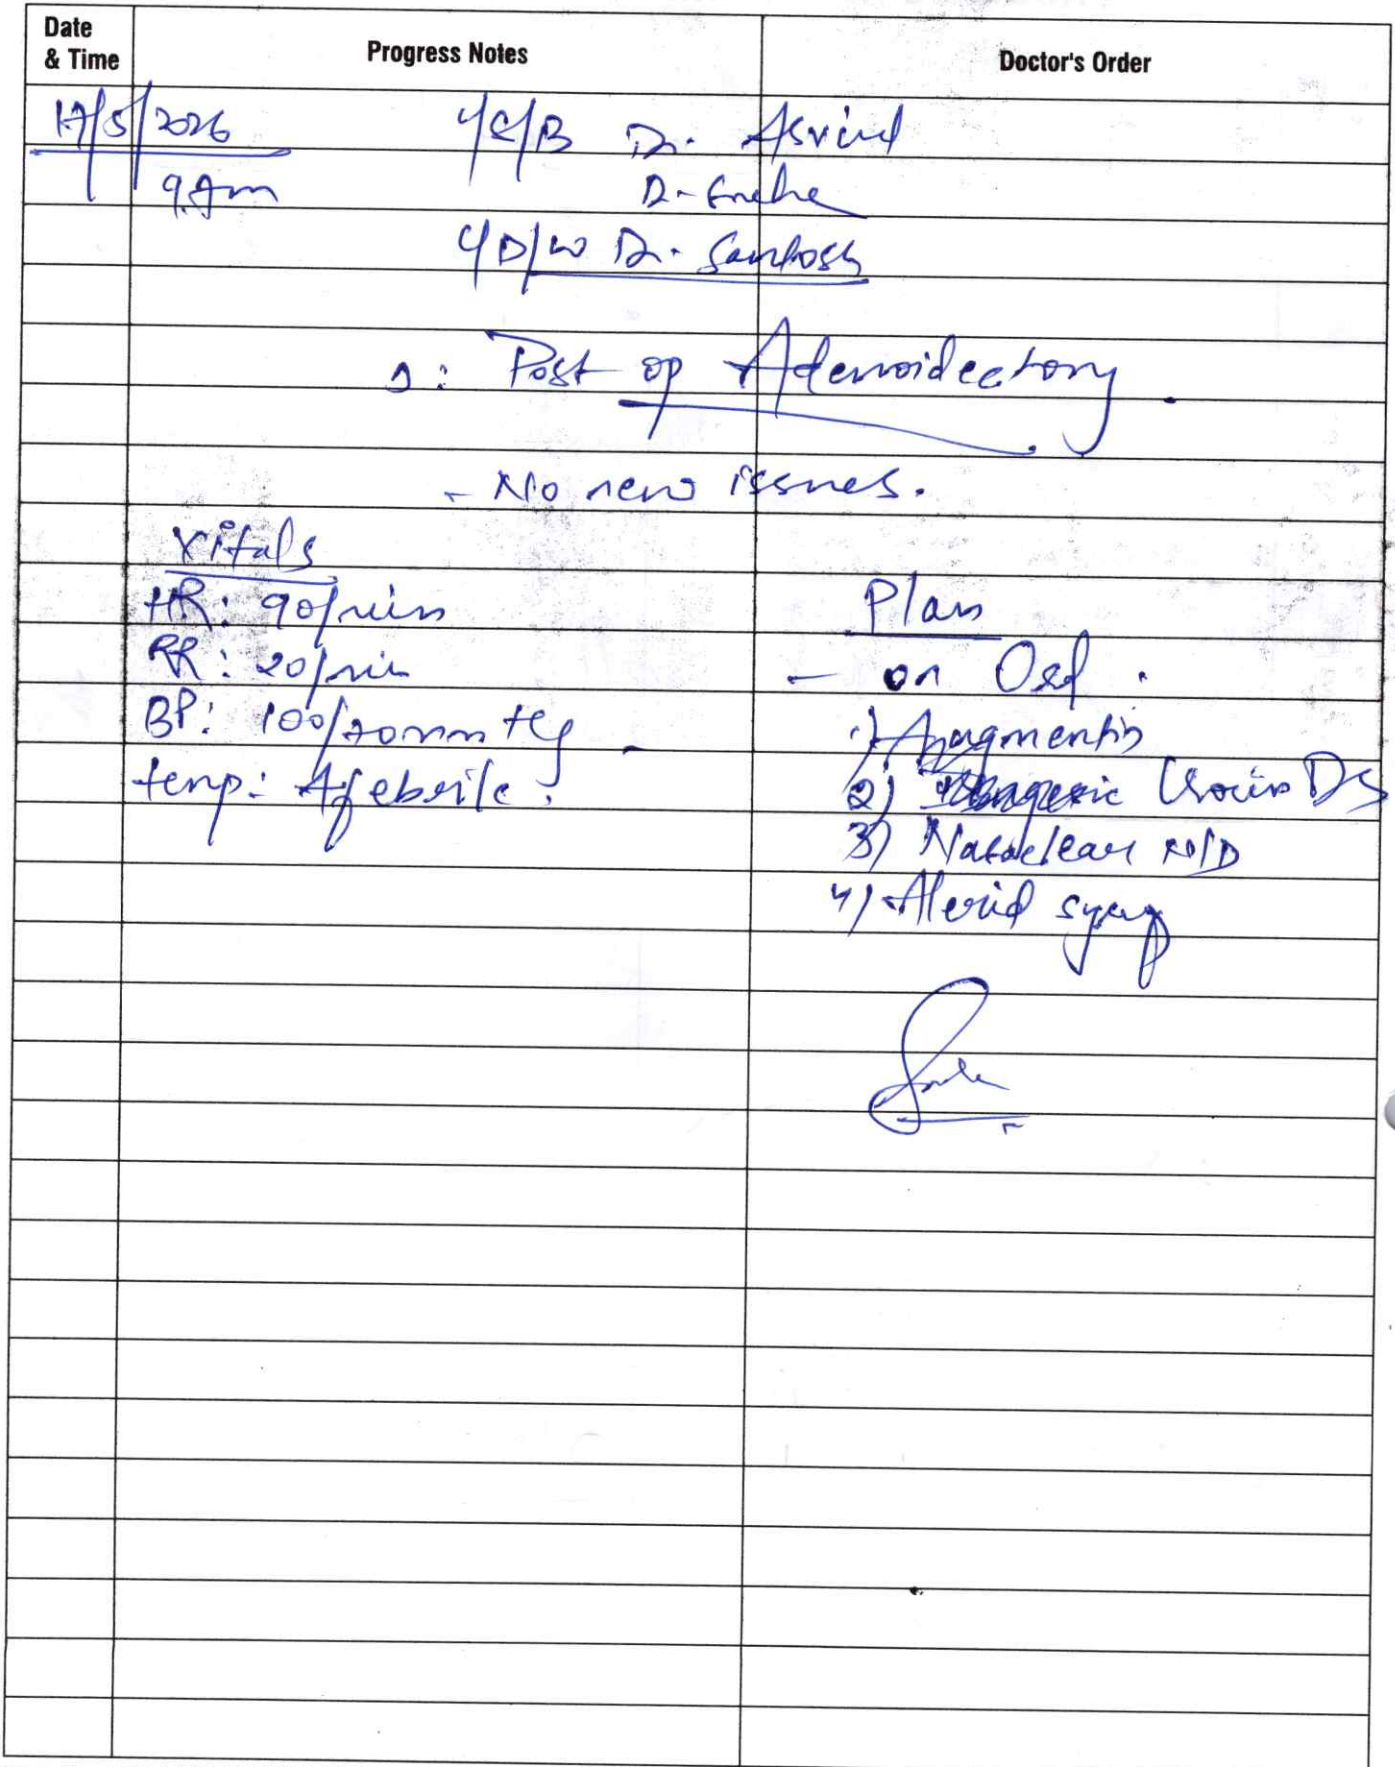 Date & Time
Progress Notes
Doctor's Order
17/5/2026
9 Am
C/S/B Dr. Asvind
Dr. Sneha
C/D/W Dr. Santosh
Δ: Post op Adenoidectomy.
- No new issues.
Vitals
HR: 90/min
RR: 20/min
BP: 100/70mmHg
temp: Afebrile.
Plan
- on Oxf.
1) Augmentin
2) Crocin DS
3) Nasoclear N/D
4) Alerid syrup